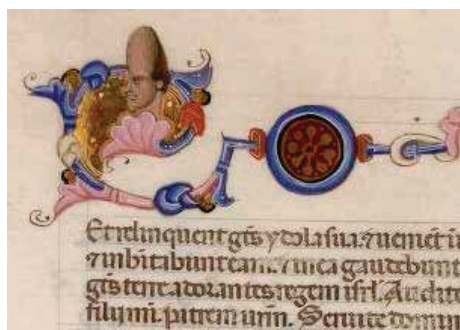 Et relinquent gt̃s ydola sua. ⁊ uenient i
⁊ inhabitabunt eam. ⁊ in ea gaudebunt
gt̃s terre adorantes regem isrl̃. Audite
filij mi. patrem urm̃. Seruite domin